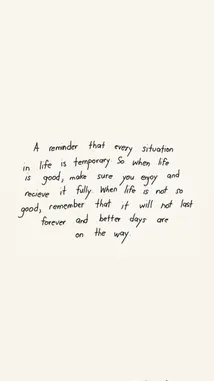 A reminder that every situation
in life is temporary So when life
is good, make sure you enjoy and
recieve it fully. When life is not so
good, remember that it will not last
forever and better days are
on the way.